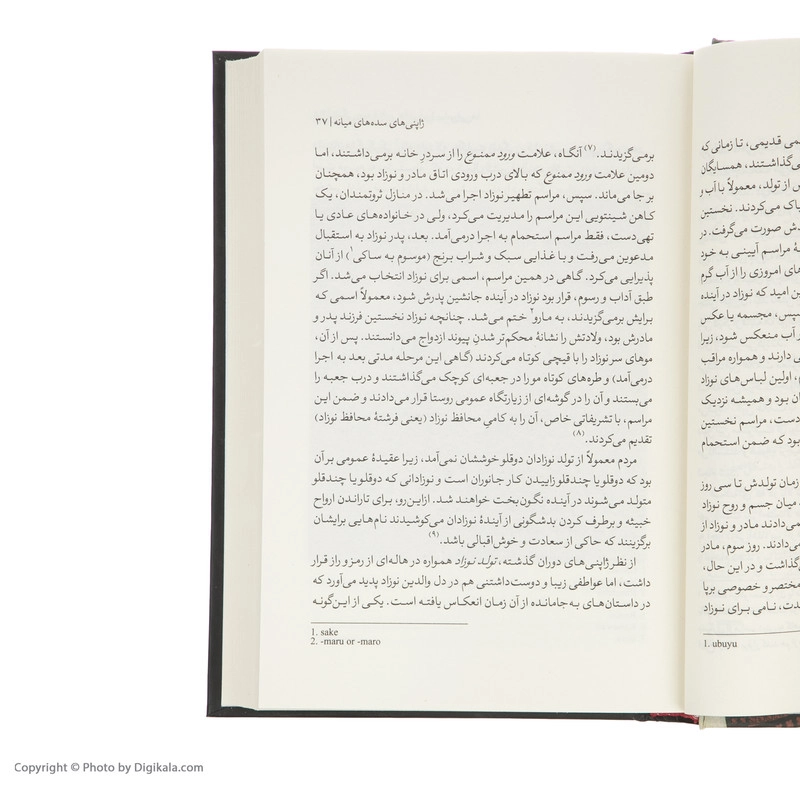 ژاپنی‌های سده‌های میانه | ۳۷
برمی‌گزیدند.(۷) آنگاه، علامت ورودِ ممنوع را از سردرِ خانه برمی‌داشتند، اما
دومین علامت ورودِ ممنوع که بالای درب ورودی اتاق مادر و نوزاد بود، همچنان
بر جا می‌ماند. سپس، مراسم تطهیر نوزاد اجرا می‌شد. در منازل ثروتمندان، یک
کاهن شینتویی این مراسم را مدیریت می‌کرد، ولی در خانواده‌های عادی یا
تهی‌دست، فقط مراسم استحمام به اجرا درمی‌آمد. بعد، پدر نوزاد به استقبال
مدعوین می‌رفت و با غذایی سبک و شراب برنج (موسوم به ساکی۱) از آنان
پذیرایی می‌کرد. گاهی در همین مراسم، اسمی برای نوزاد انتخاب می‌شد. اگر
طبق آداب و رسوم، قرار بود نوزاد در آینده جانشین پدرش شود، معمولاً اسمی که
برایش برمی‌گزیدند، به مارو۲ ختم می‌شد. چنانچه نوزاد نخستین فرزند پدر و
مادرش بود، ولادتش را نشانهٔ محکم‌تر شدنِ پیوند ازدواج می‌دانستند. پس از آن،
موهای سر نوزاد را با قیچی کوتاه می‌کردند (گاهی این مرحله مدتی بعد به اجرا
درمی‌آمد) و طره‌های کوتاه مو را در جعبه‌ای کوچک می‌گذاشتند و درب جعبه را
می‌بستند و آن را در گوشه‌ای از زیارتگاه عمومی روستا قرار می‌دادند و ضمن این
مراسم، با تشریفاتی خاص، آن را به کامیِ محافظ نوزاد (یعنی فرشتهٔ محافظ نوزاد)
تقدیم می‌کردند.(۸)
مردم معمولاً از تولد نوزادان دوقلو خوششان نمی‌آمد، زیرا عقیدهٔ عمومی بر آن
بود که دوقلو یا چندقلو زاییدن کار جانوران است و نوزادانی که دوقلو یا چندقلو
متولد می‌شوند در آینده نگون‌بخت خواهند شد. ازاین‌رو، برای تاراندن ارواح
خبیثه و برطرف کردن بدشگونی از آیندهٔ نوزادان می‌کوشیدند نام‌هایی برایشان
برگزینند که حاکی از سعادت و خوش‌اقبالی باشد.(۹)
از نظر ژاپنی‌های دوران گذشته، تولد نوزاد همواره در هاله‌ای از رمز و راز قرار
داشت، اما عواطفی زیبا و دوست‌داشتنی هم در دل والدین نوزاد پدید می‌آورد که
در داستان‌های به‌جامانده از آن زمان انعکاس یافته است. یکی از این‌گونه
1. sake
2. -maru or -maro
می قدیمی، تا زمانی که
می‌گذاشتند، همسایگان
س از تولد، معمولاً با آب و
پاک می‌کردند. نخستین
دش صورت می‌گرفت. در
هٔ مراسم آیینی به خود
های امروزی را از آب گرم
ین امید که نوزاد در آینده
سپس، مجسمه یا عکس
ر آب منعکس شود، زیرا
ی دارند و همواره مراقب
، اولین لباس‌های نوزاد
ان بود و همیشه نزدیک
دست، مراسم نخستین
بود که ضمن استحمام
زمان تولدش تا سی روز
د میان جسم و روح نوزاد
می‌دادند مادر و نوزاد از
می‌دادند. روز سوم، مادر
گذاشت و در این حال،
مختصر و خصوصی برپا
دت، نامی برای نوزاد
1. ubuyu
Copyright © Photo by Digikala.com